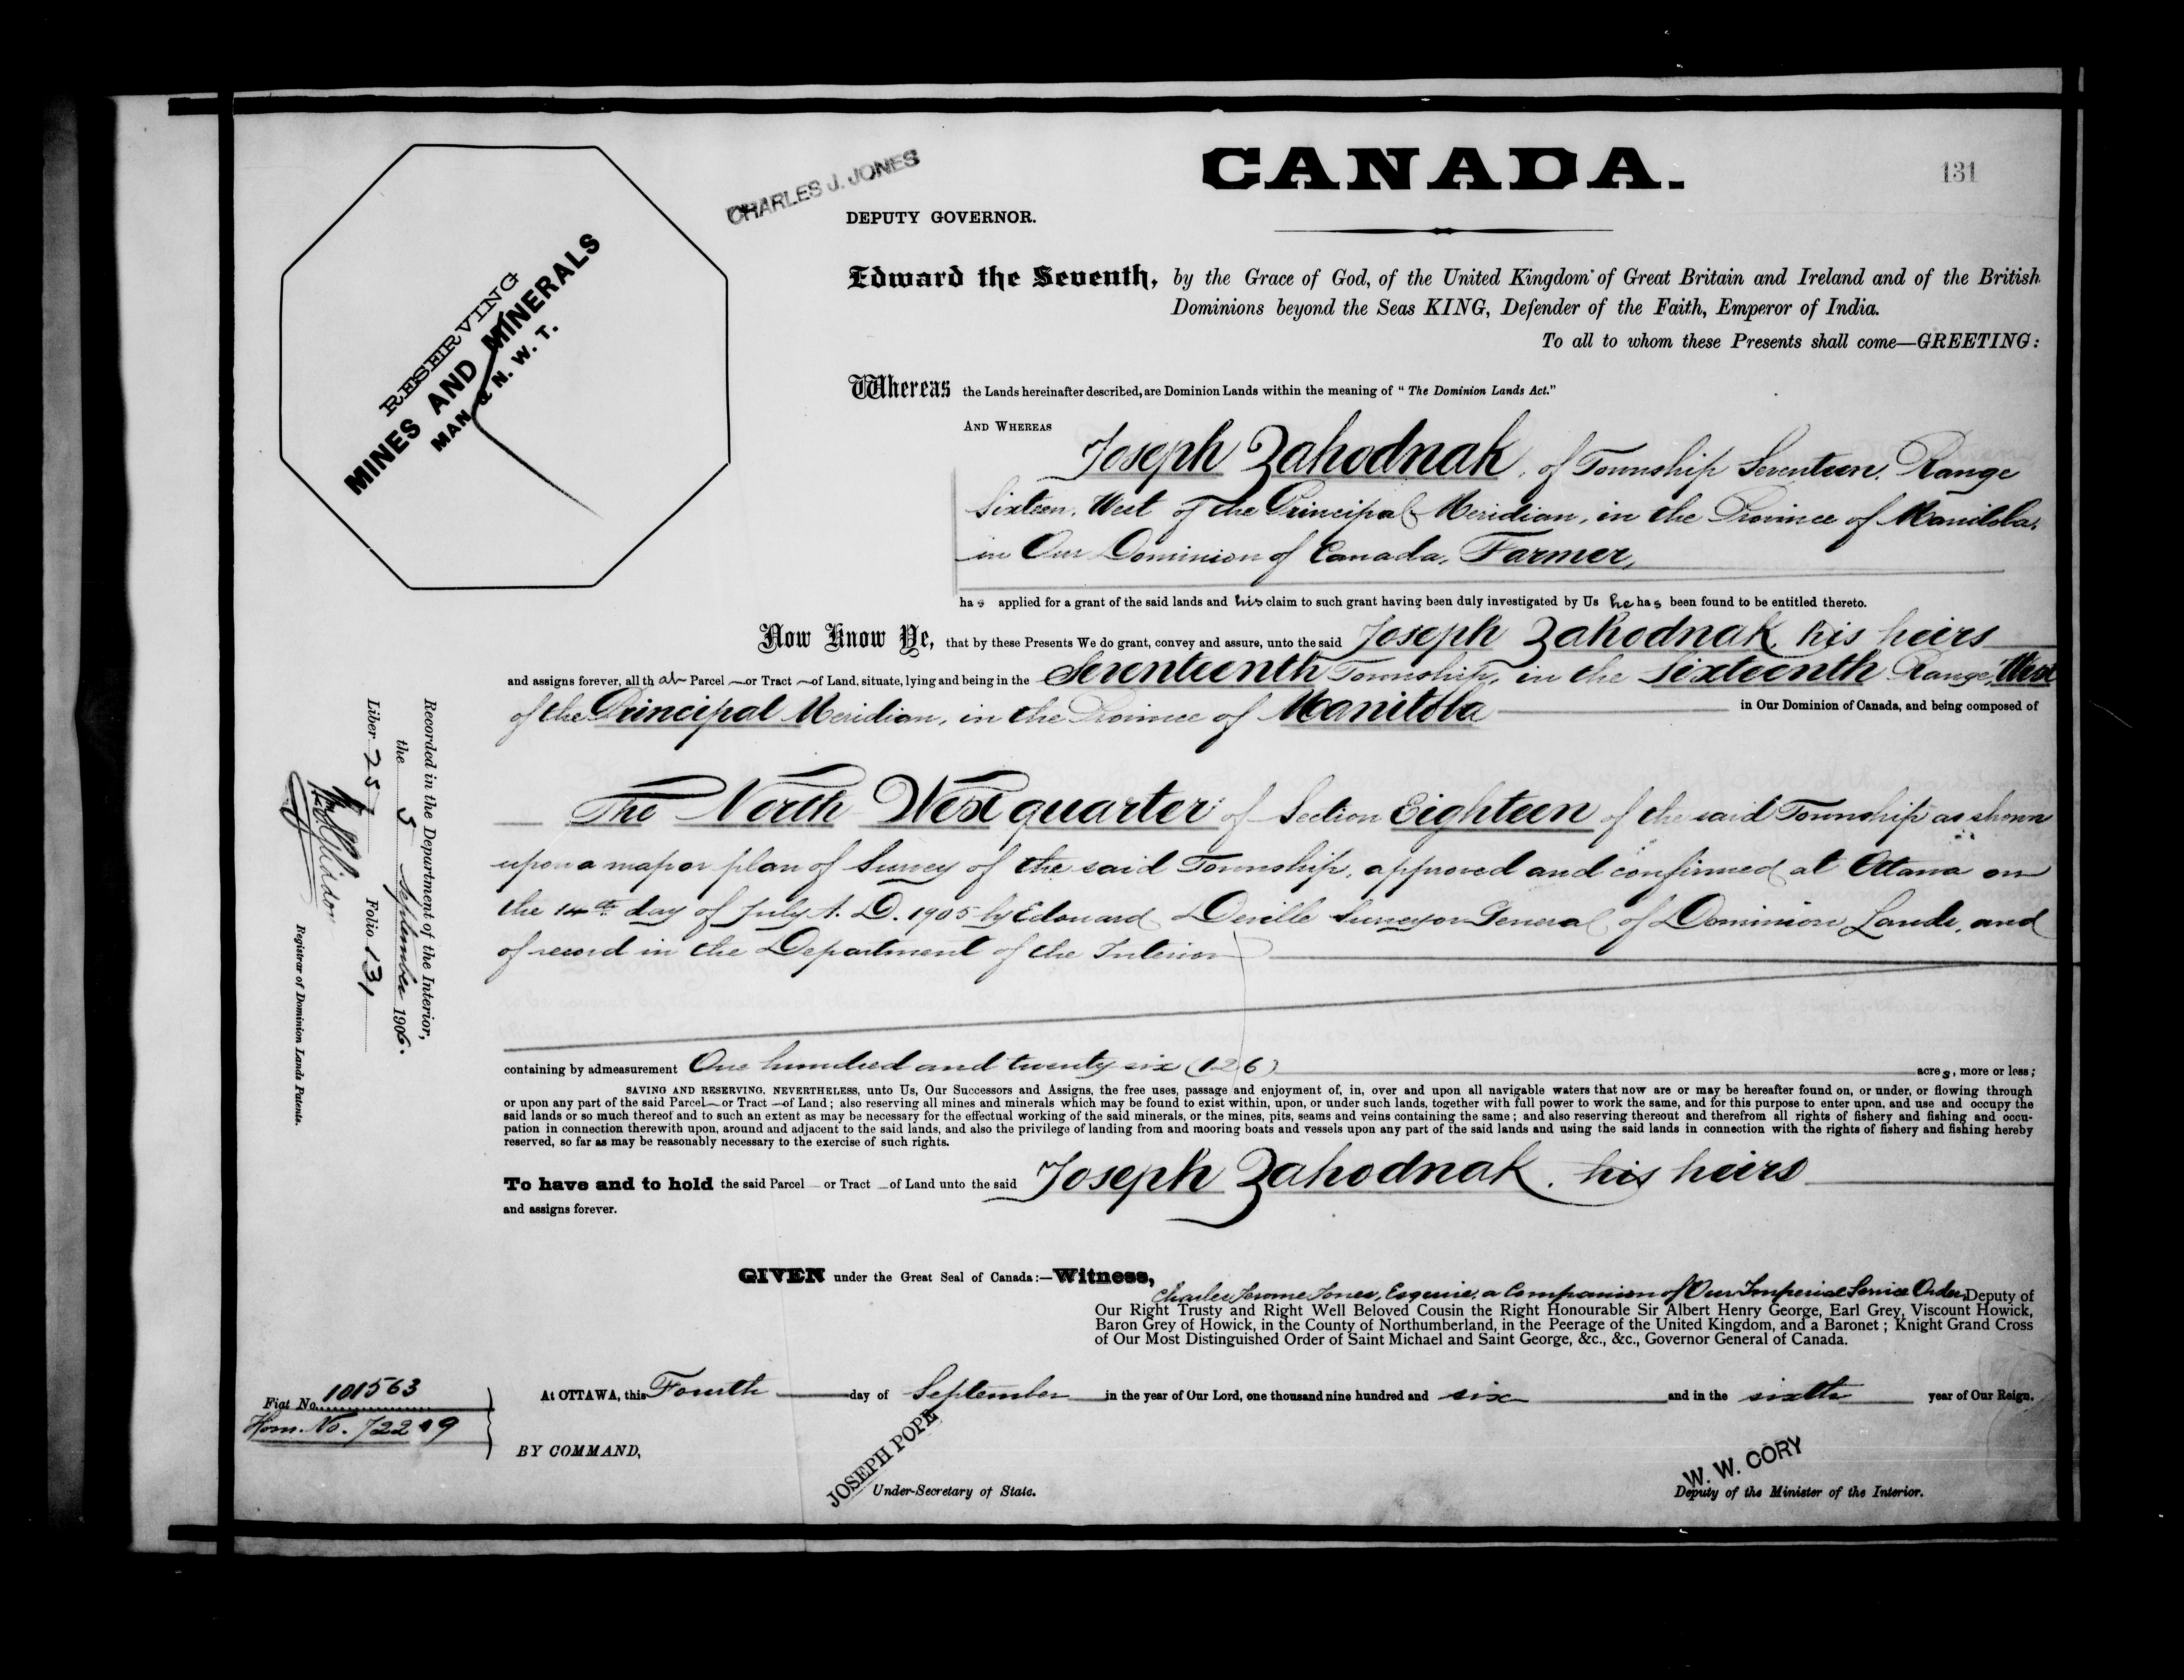 CANADA.
131
CHARLES J. JONES
DEPUTY GOVERNOR.
RESERVING
MINES AND MINERALS
MAN & N. W. T.
Edward the Seventh, by the Grace of God, of the United Kingdom of Great Britain and Ireland and of the British
Dominions beyond the Seas KING, Defender of the Faith, Emperor of India.
To all to whom these Presents shall come—GREETING:
Whereas the Lands hereinafter described, are Dominion Lands within the meaning of "The Dominion Lands Act."
AND WHEREAS
Joseph Zahodnak, of Township Seventeen, Range
Sixteen, West of the Principal Meridian, in the Province of Manitoba,
in Our Dominion of Canada, Farmer,
has applied for a grant of the said lands and his claim to such grant having been duly investigated by Us he has been found to be entitled thereto.
Now Know Ye, that by these Presents We do grant, convey and assure, unto the said Joseph Zahodnak, his heirs
and assigns forever, all that Parcel or Tract of Land, situate, lying and being in the Seventeenth Township, in the Sixteenth Range, West
of the Principal Meridian, in the Province of Manitoba in Our Dominion of Canada, and being composed of
The North West quarter of Section Eighteen of the said Township as shown
upon a map or plan of Survey of the said Township, approved and confirmed at Ottawa on
the 14th day of July A. D. 1905 by Edouard Deville Surveyor General of Dominion Lands, and
of record in the Department of the Interior
containing by admeasurement One hundred and twenty six (126) acres, more or less;
SAVING AND RESERVING, NEVERTHELESS, unto Us, Our Successors and Assigns, the free uses, passage and enjoyment of, in, over and upon all navigable waters that now are or may be hereafter found on, or under, or flowing through
or upon any part of the said Parcel or Tract of Land; also reserving all mines and minerals which may be found to exist within, upon, or under such lands, together with full power to work the same, and for this purpose to enter upon, and use and occupy the
said lands or so much thereof and to such an extent as may be necessary for the effectual working of the said minerals, or the mines, pits, seams and veins containing the same; and also reserving thereout and therefrom all rights of fishery and fishing and occu-
pation in connection therewith upon, around and adjacent to the said lands, and also the privilege of landing from and mooring boats and vessels upon any part of the said lands and using the said lands in connection with the rights of fishery and fishing hereby
reserved, so far as may be reasonably necessary to the exercise of such rights.
To have and to hold the said Parcel or Tract of Land unto the said Joseph Zahodnak, his heirs
and assigns forever.
GIVEN under the Great Seal of Canada:—Witness,
Charles Jerome Jones, Esquire, a Companion of Our Imperial Service Order, Deputy of
Our Right Trusty and Right Well Beloved Cousin the Right Honourable Sir Albert Henry George, Earl Grey, Viscount Howick,
Baron Grey of Howick, in the County of Northumberland, in the Peerage of the United Kingdom, and a Baronet; Knight Grand Cross
of Our Most Distinguished Order of Saint Michael and Saint George, &c., &c., Governor General of Canada.
At OTTAWA, this Fourth day of September in the year of Our Lord, one thousand nine hundred and six and in the sixth year of Our Reign.
BY COMMAND,
JOSEPH POPE
Under-Secretary of State.
W. W. CORY
Deputy of the Minister of the Interior.
Fiat No. 101563
Hom. No. 72249
Recorded in the Department of the Interior,
the 5 September 1906.
Liber 257 Folio 131
Registrar of Dominion Lands Patents.